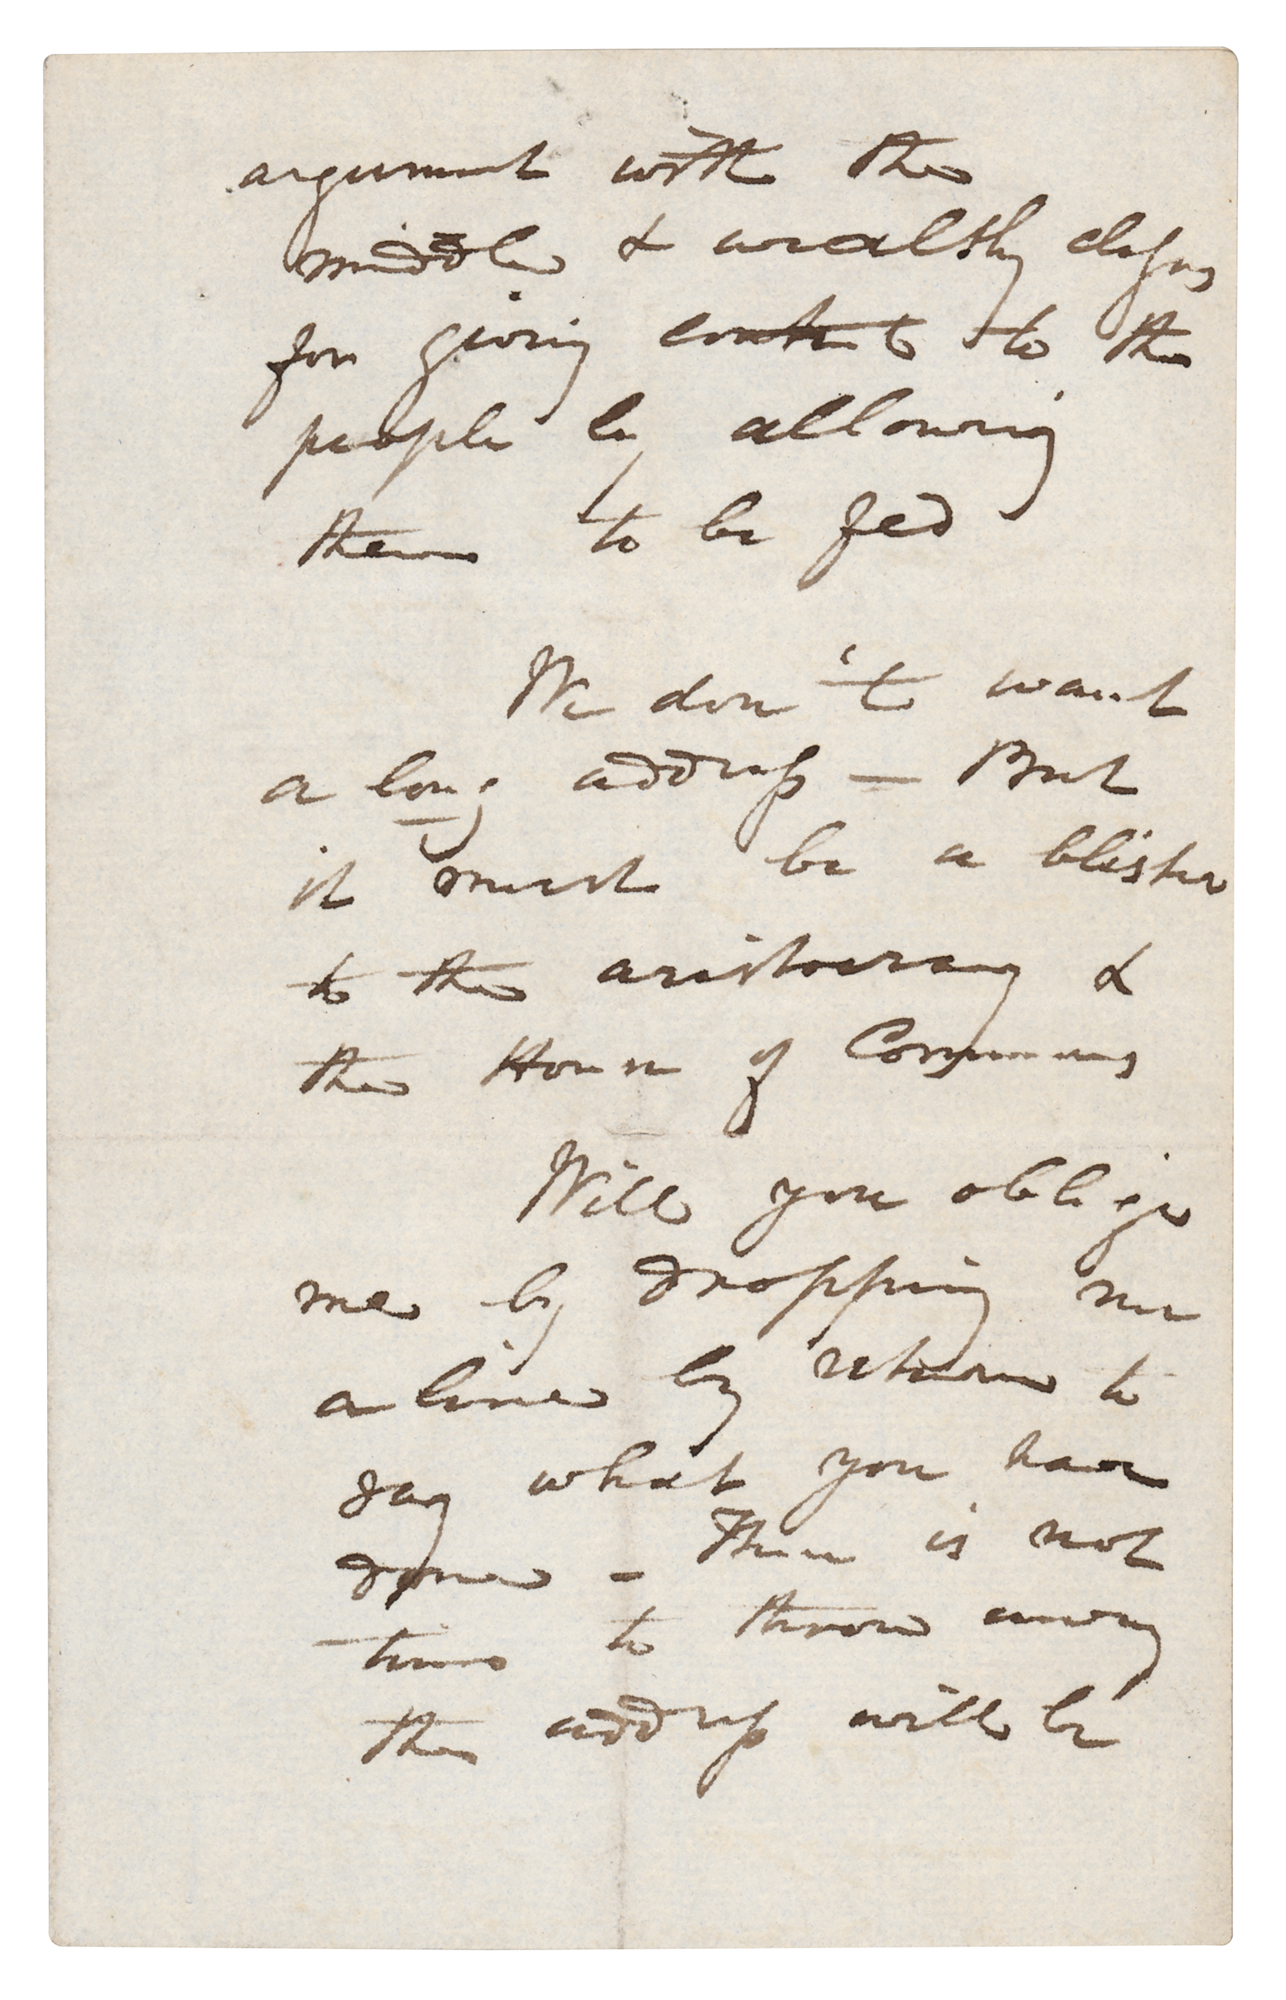 argument with the
middle & wealthy classes
for giving content to the
people by allowing
them to be fed
We don't want
a long address — But
it must be a blister
to the aristocracy &
the House of Commons
Will you oblige
me by dropping me
a line by return to
say what you have
done — There is not
time to throw away
the address will be